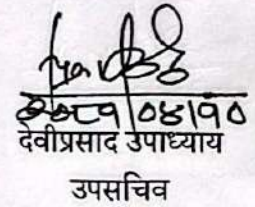 २०८१/०४/१०
देवीप्रसाद उपाध्याय
उपसचिव